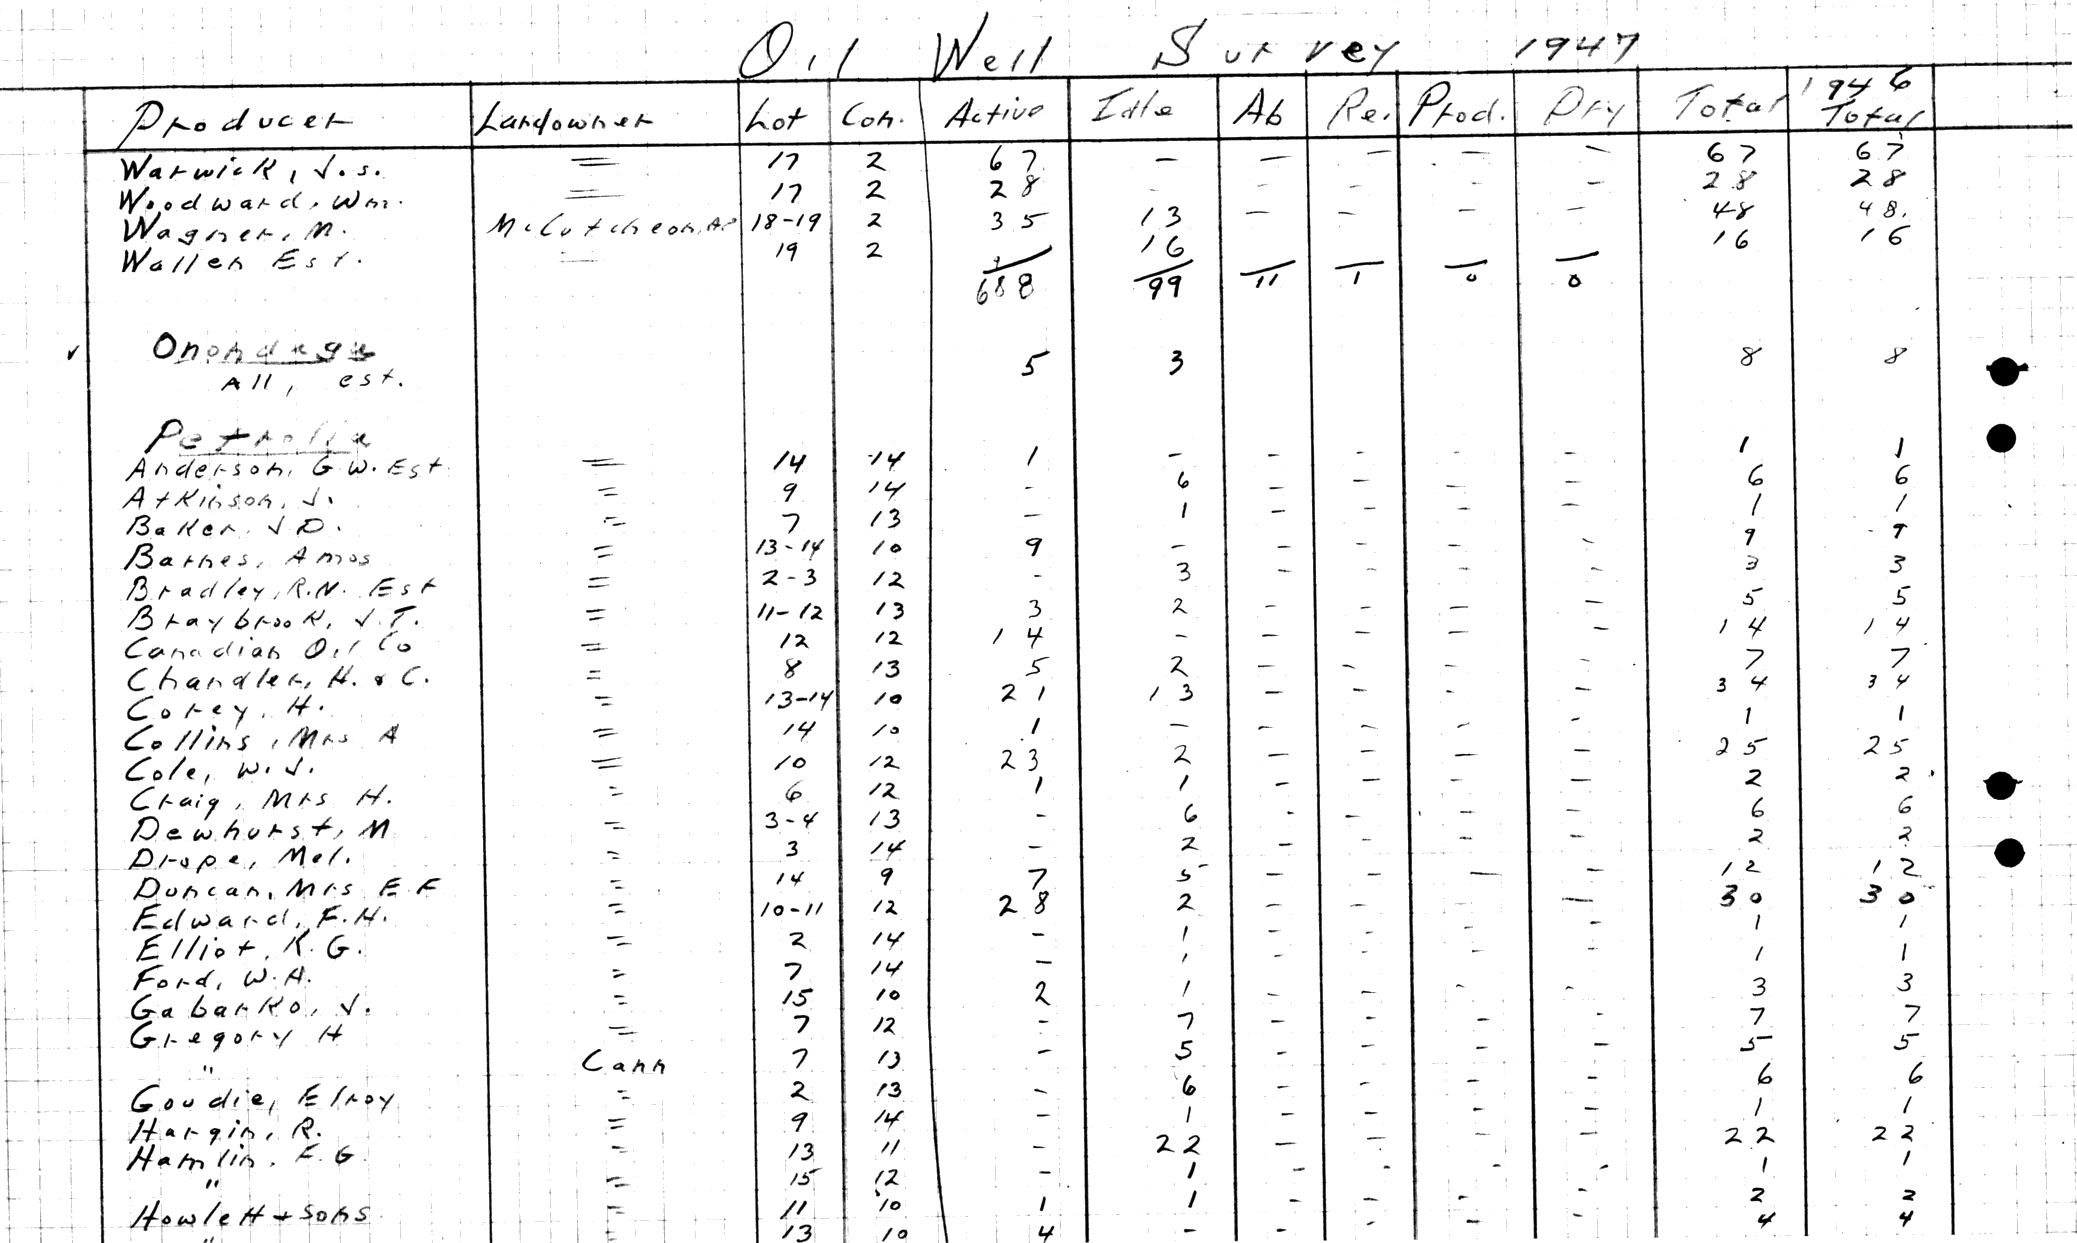 Oil Well Survey 1947
Producer Landowner Lot Con. Active Idle Ab Re. Prod. Dry Total 1946 Total
Warwick, J.S. = 17 2 67 - - - - - 67 67
Woodward, Wm. = 17 2 28 - - - - - 28 28
Wagner, M. McCutcheon, 18-19 2 35 13 - - - - 48 48.
Waller Est. = 19 2 16 16 16
688 99 11 1 0 0
✓ Onondaga
All, est. 5 3 8 8
Petrolia
Anderson, G.W. Est. = 14 14 1 - - - - - 1 1
Atkinson, J. = 9 14 - 6 - - - - 6 6
Baker, J D. = 7 13 - 1 - - - - 1 1
Barnes, Amos = 13-14 10 9 - - - - - 9 9
Bradley, R.N. Est = 2-3 12 - 3 - - - - 3 3
Braybrook, J.T. = 11-12 13 3 2 - - - - 5 5
Canadian Oil Co = 12 12 14 - - - - - 14 14
Chandler, H. & C. = 8 13 5 2 - - - - 7 7
Corey, H. = 13-14 10 21 13 - - - - 34 34
Collins, Mrs A = 14 10 1 - - - - - 1 1
Cole, W.J. = 10 12 23 2 - - - - 25 25
Craig, Mrs H. = 6 12 1 1 - - - - 2 2
Dewhurst, M = 3-4 13 - 6 - - - - 6 6
Drope, Mel. = 3 14 - 2 - - - - 2 2
Duncan, Mrs E F = 14 9 7 5 - - - - 12 12
Edward, F.H. = 10-11 12 28 2 - - - - 30 30
Elliot, K.G. = 2 14 - 1 - - - - 1 1
Ford, W.A. = 7 14 - 1 - - - - 1 1
Gabarko, J. = 15 10 2 1 - - - - 3 3
Gregory H = 7 12 - 7 - - - - 7 7
" Cann 7 13 - 5 - - - - 5 5
Goudie, Elroy = 2 13 - 6 - - - - 6 6
Hargin, R. = 9 14 - 1 - - - - 1 1
Hamlin, F.G. = 13 11 - 22 - - - - 22 22
" = 15 12 - 1 - - - - 1 1
Howlett + Sons = 11 10 1 1 - - - - 2 2
" = 13 10 4 - - - - - 4 4